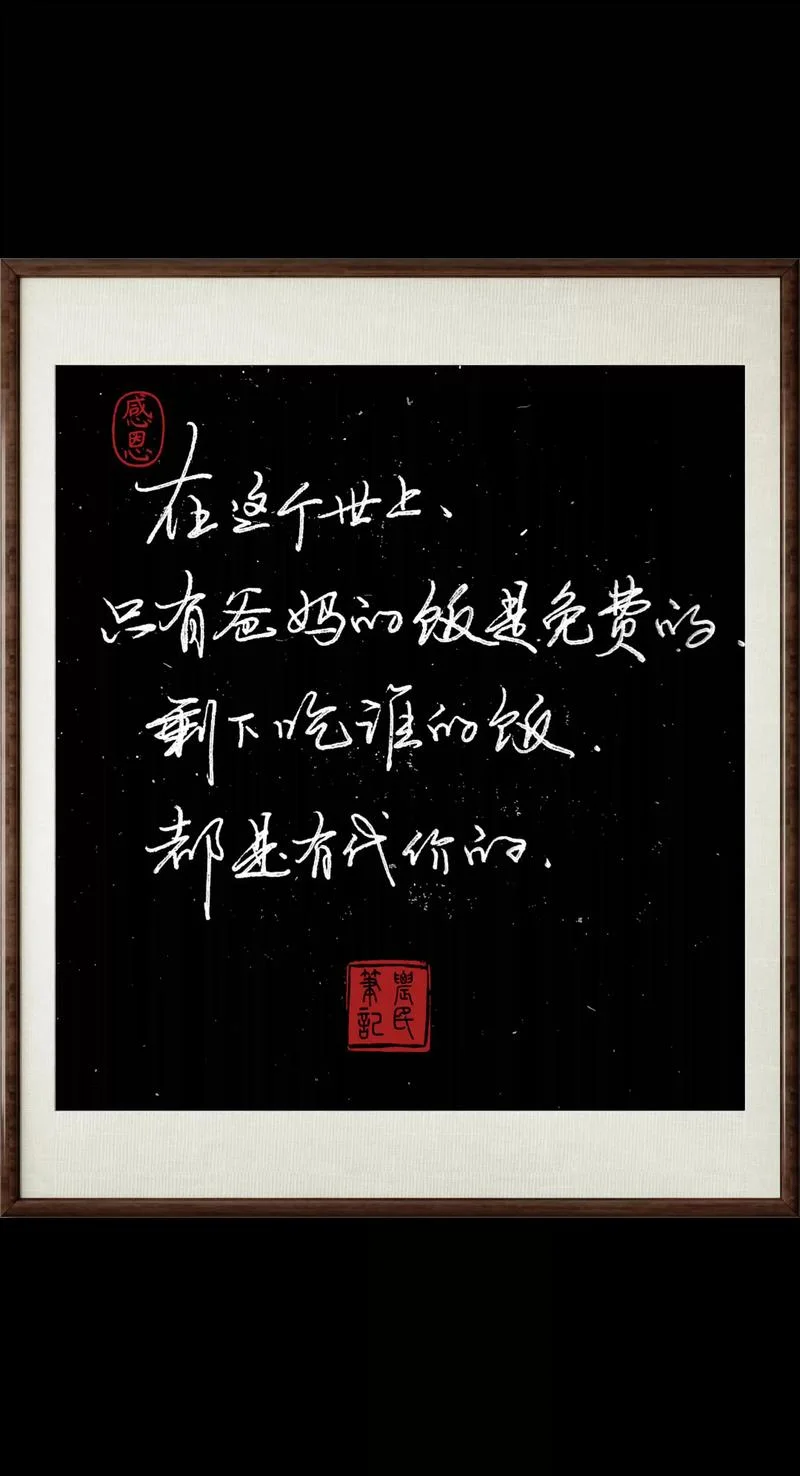 感恩
在这个世上、
只有爸妈的饭是免费的.
剩下吃谁的饭.
都是有代价的.
農民
筆記